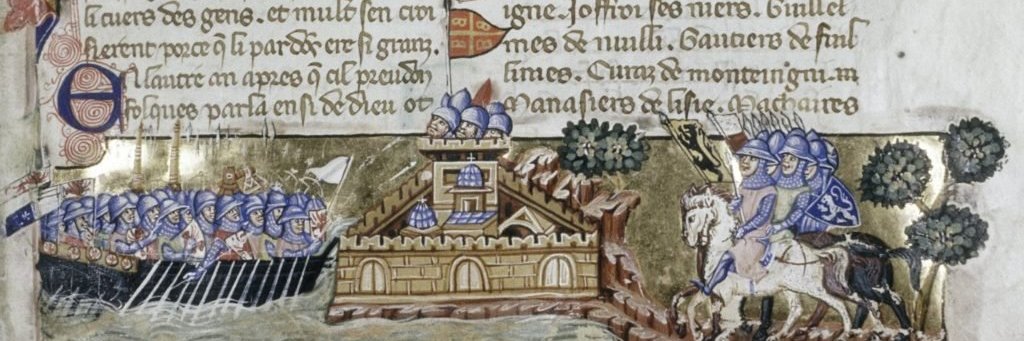 li cuers des gens. et mult sen croi
sierent por ce q̃ li pardõs ere si granz.
En lautre an apres q̃ cil preudõ
folques parla ensi de dieu ot
igne. Joffroi ses niers. Guillel
mes de nuilli. Gautiers de fuil
limes. Curaz de monteingni.
Manasiers de lisle. Machaires